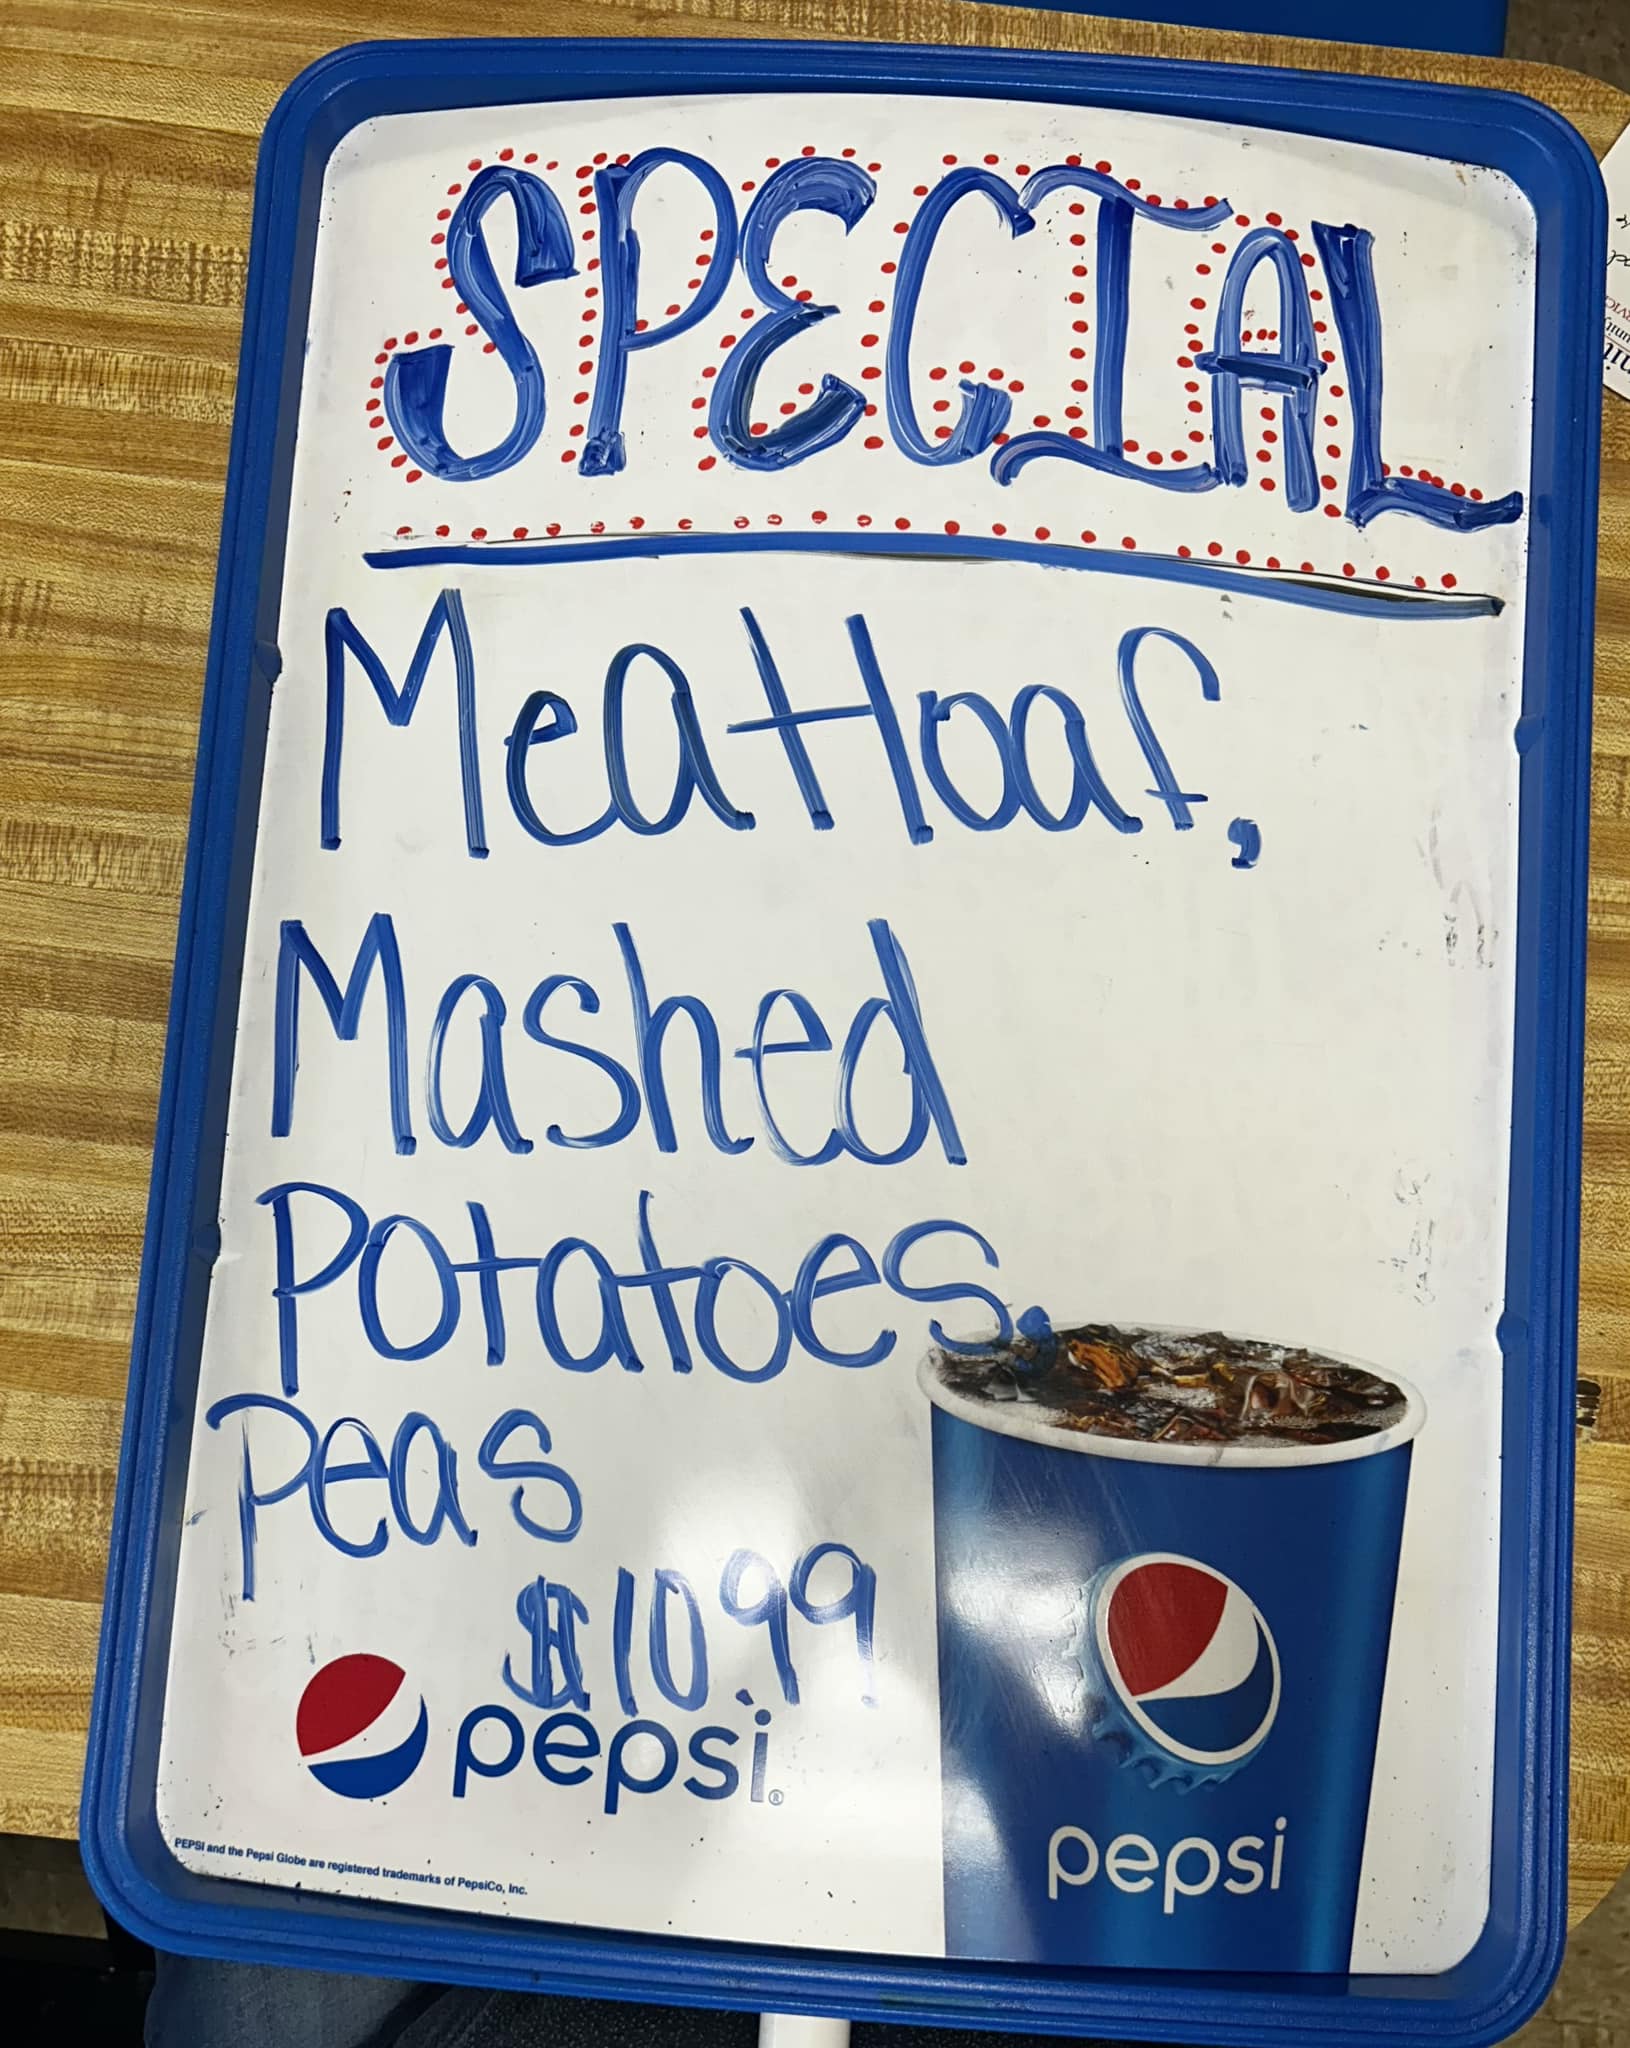 SPECIAL
Meatloaf,
Mashed
Potatoes,
Peas
$10.99
pepsi®
pepsi
PEPSI and the Pepsi Globe are registered trademarks of PepsiCo, Inc.